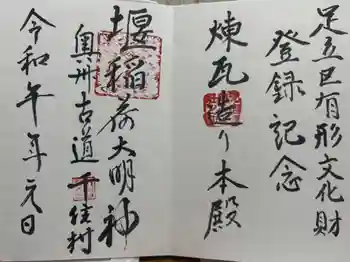 足立区有形文化財
登録記念
煉瓦造り本殿
堰稲荷大明神
奥州古道 千住村
令和 年 年 元日